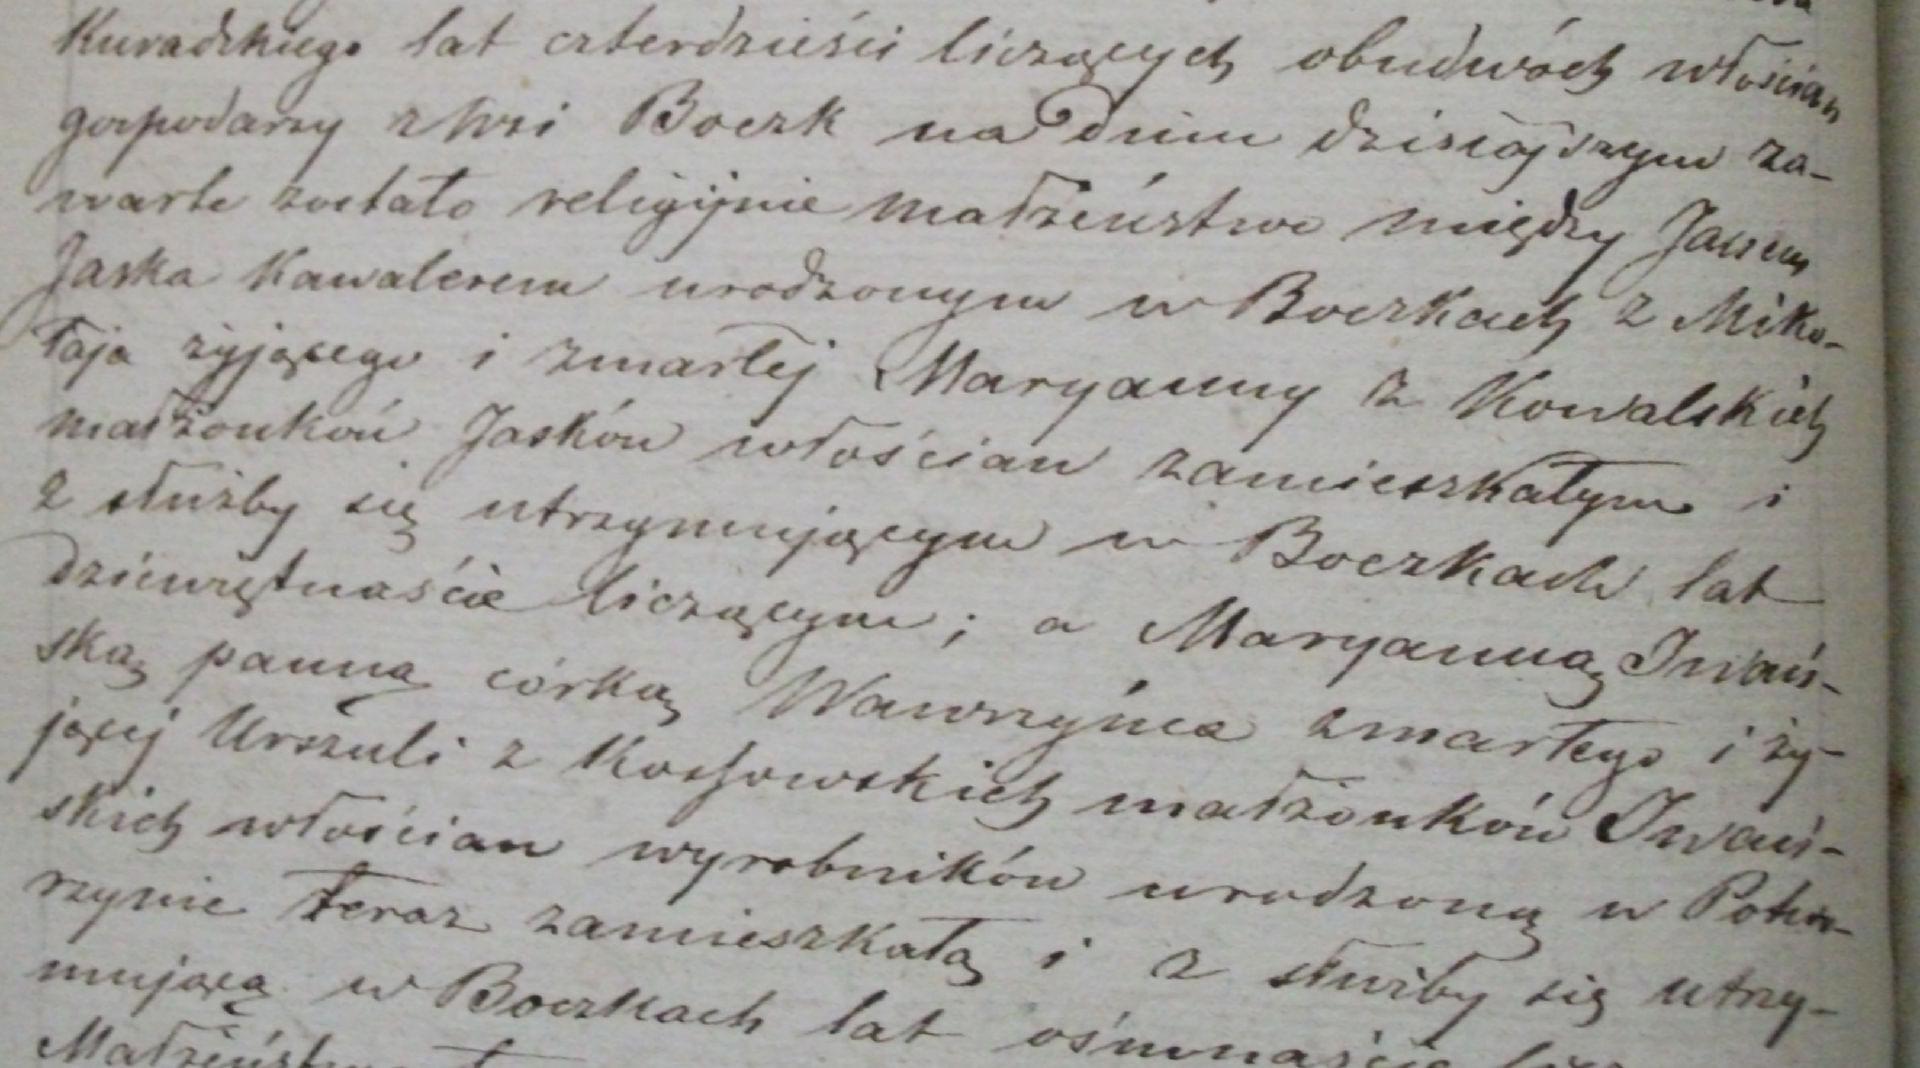 Kuradzkiego lat czterdzieści liczących obudwóch włościan
gospodarzy z Wsi Boczk na dniu dzisiajszym za-
warte zostało religijnie małżeństwo między Janem
Jaska Kawalerem urodzonym w Boczkach z Miko-
łaja żyjącego i zmarłej Maryanny z Kowalskich
małżonków Jasków włościan zamieszkałym i
z służby się utrzymującym w Boczkach lat
dziewiętnaście liczącym; a Maryanną Iwań-
ską panną córką Wawrzyńca zmarłego i ży-
jącej Urszuli z Kossowskich małżonków Iwań-
skich włościan wyrobników urodzoną w
rzynie teraz zamieszkałą i z służby się utrzy-
mującą w Boczkach lat ośmnaście